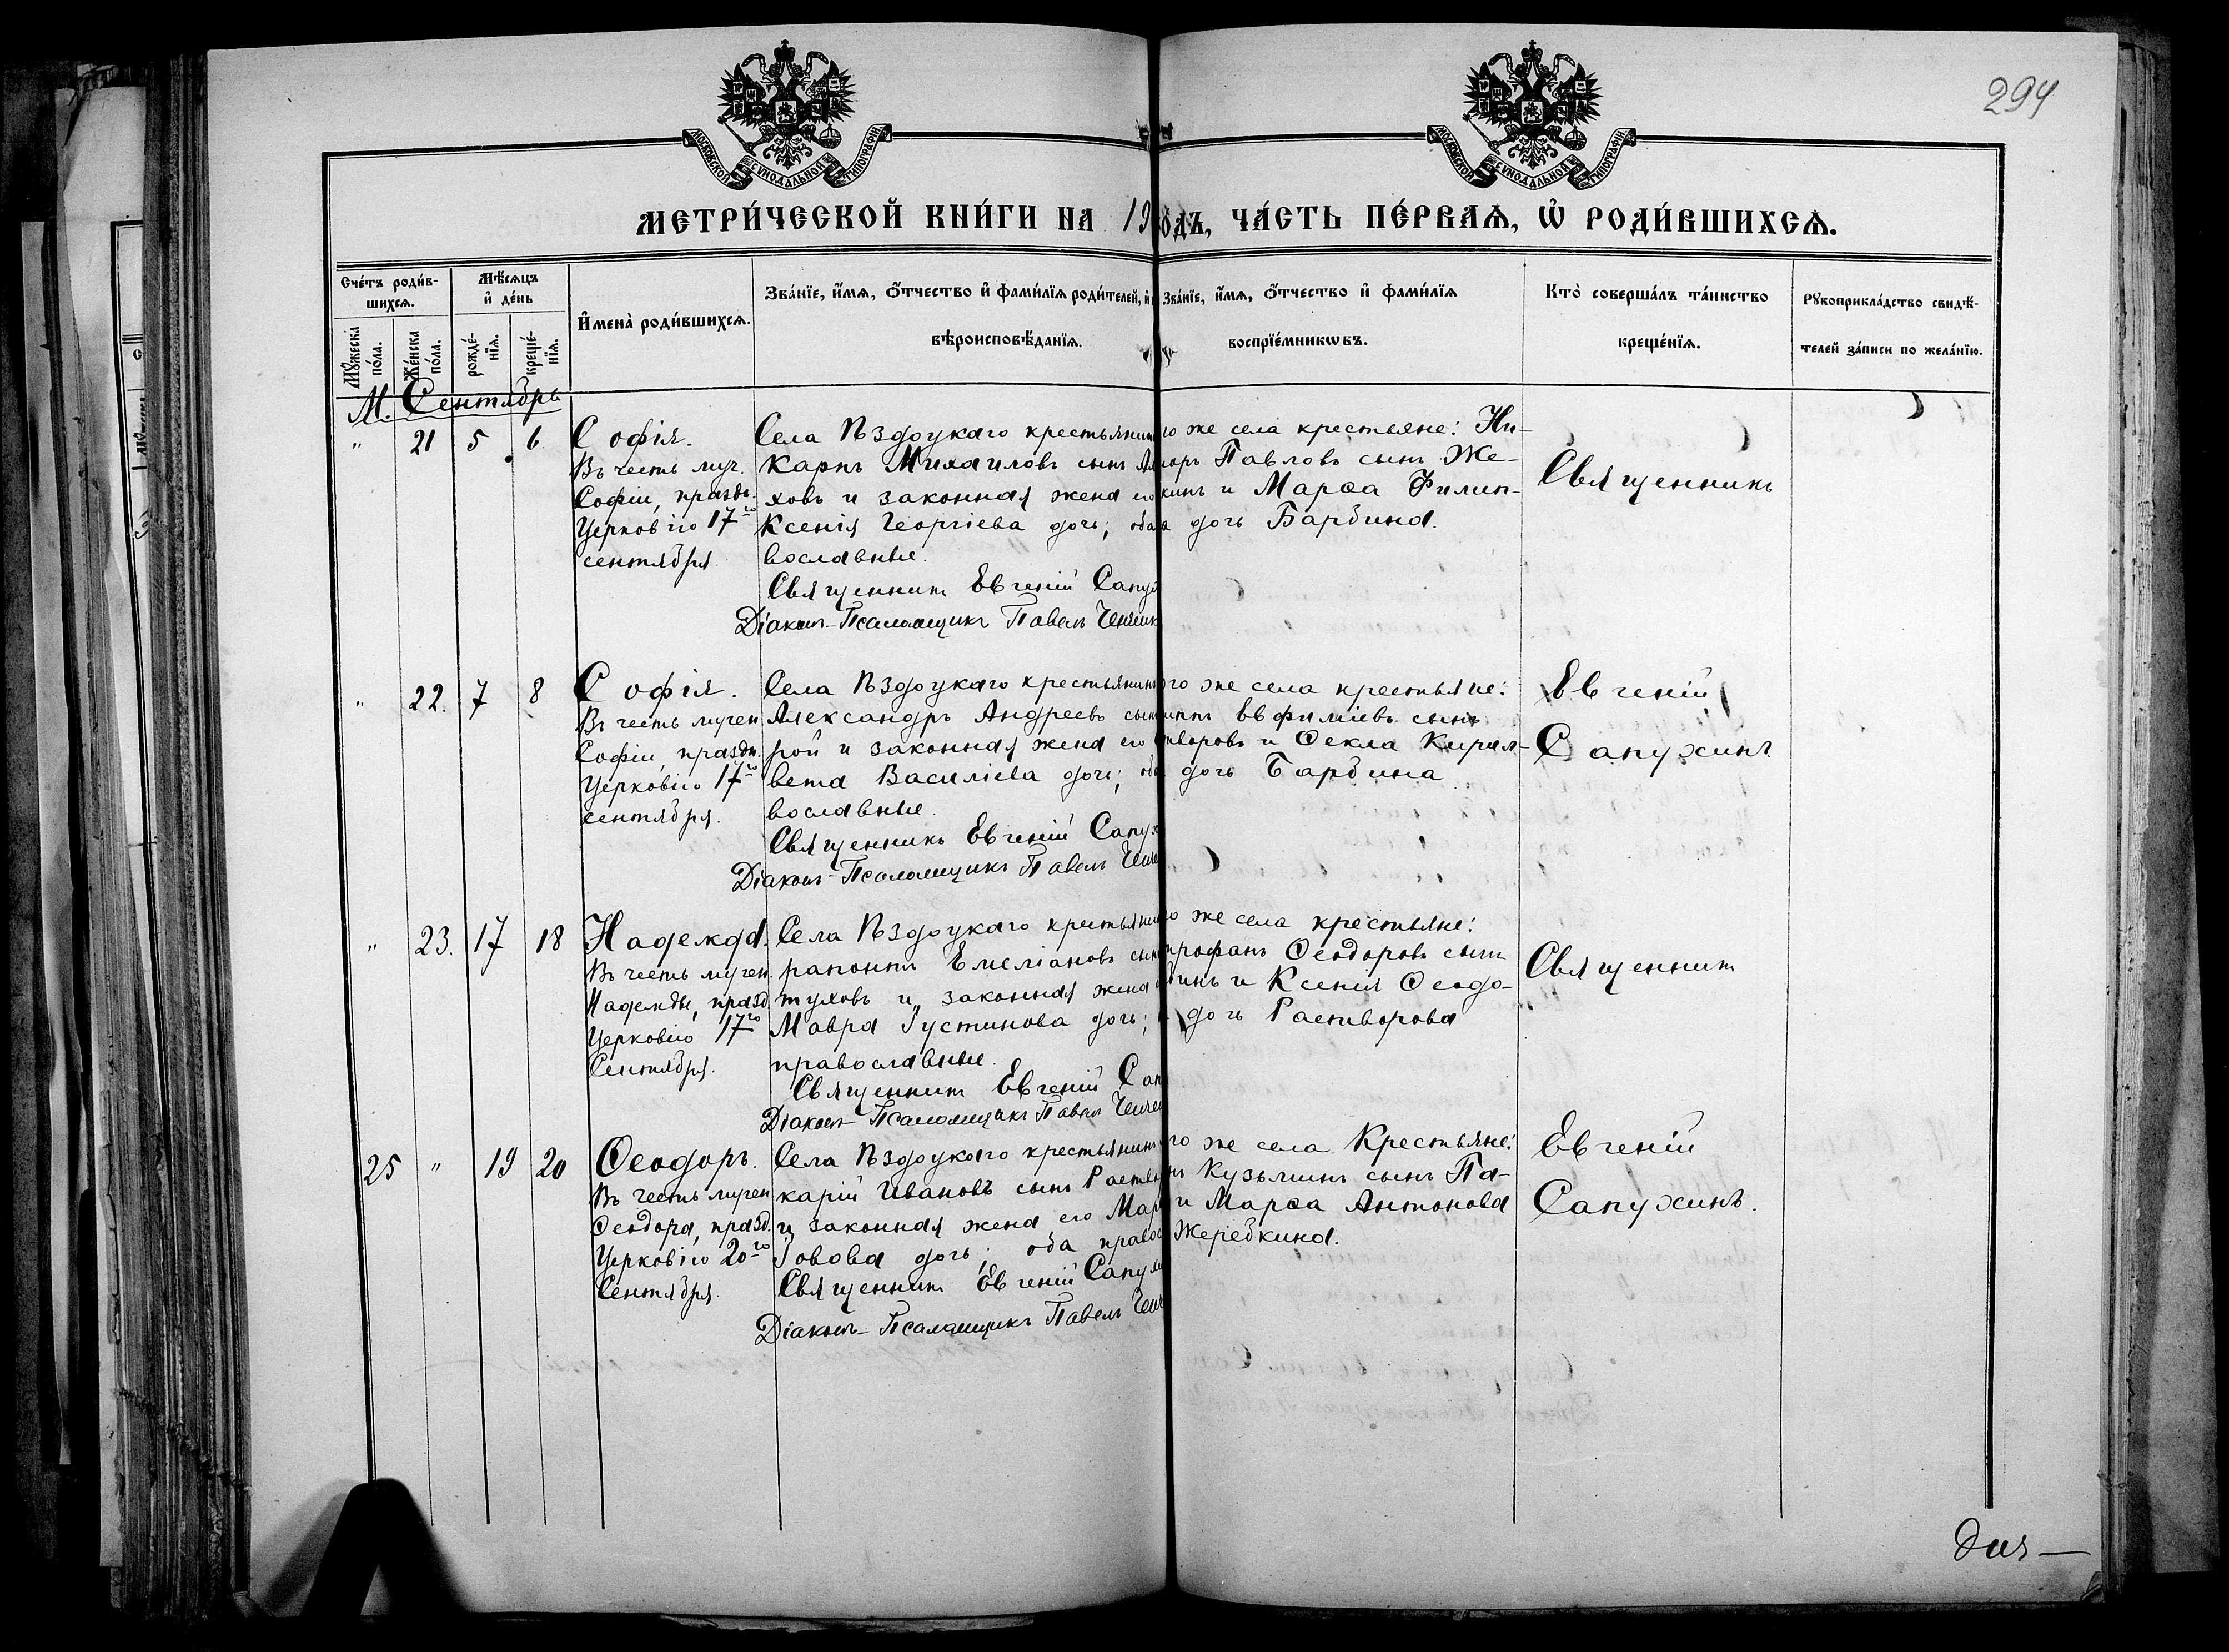 294
МОСКОВСКОЙ СѴНОДАЛЬНОЙ ТИПОГРАФІИ
МОСКОВСКОЙ СѴНОДАЛЬНОЙ ТИПОГРАФІИ
МЕТРИ́ЧЕСКОЙ КНИ́ГИ НА 19
ОДЪ, ЧА́СТЬ ПЕ́РВАѦ, Ѡ҆ РОДИ́ВШИХСѦ.
Сче́тъ роди́в-
шихсѧ.
Мꙋ́жеска по́ла.
Же́нска по́ла.
Мѣ́сѧцъ
и҆ де́нь
рожде́-
нїѧ.
креще́-
нїѧ.
И҆мена̀ роди́вшихсѧ.
Зва́нїе, и҆́мѧ, ѻ҆́тчество и҆ фами́лїѧ роди́телей, и҆
вѣроисповѣ́данїѧ.
Зва́нїе, и҆́мѧ, ѻ҆́тчество и҆ фами́лїѧ
воспрїе́мникѡвъ.
Кто̀ соверша́лъ та́инство
креще́нїѧ.
Рꙋкоприкла́дство свидѣ́-
телей за́писи по жела́нїю.
М. Сентябрь
" 21 5 6
Софія.
Въ честь муч.
Софіи, празд.
Церковію 17го
сентября
Села Ѣздоцкаго крестьянин
карпъ Михаиловъ сынъ
ховъ и законная жена его
Ксенія Георгіева дочь; оба
вославные.
Священникъ Евгеній Сапух
Діаконъ-Псаломщикъ Павелъ
го же села крестьяне: Ни-
Павловъ сынъ Же-
кинъ и Марѳа Филип-
а дочь Барбина.
Священникъ
" 22. 7 8
Софія.
Въ честь мучен
Софіи, праздн.
Церковію 17го
сентября.
Села Ѣздоцкаго крестьянинъ
Александръ Андреевъ сын
рой и законная жена его
вета Василіева дочь; оба
вославные.
Священникъ Евгеній Сапух
Діаконъ-Псаломщикъ Павелъ
го же села крестьяне:
Евфиміевъ сынъ
творовъ и Ѳекла Кирил-
дочь Барбина
Евгеній
Сапухинъ
" 23. 17 18
Надежда.
Въ честь мучен.
Надежды, празд
Церковію 17го
Сентября.
Села Ѣздоцкаго крестьяни
рапонтъ Емеліановъ сын
туховъ и законная жена
Мавра Іустинова дочь;
православные.
Священникъ Евгеній Сап
Діаконъ-Псаломщикъ Павелъ
о же села крестьяне:
трофанъ Ѳеодоровъ сынъ
бинъ и Ксенія Ѳеодо-
дочь Растворова
Священникъ
25 " 19 20
Ѳеодоръ.
Въ честь мучен
Ѳеодора, празд.
Церковію 20го
Сентября.
Села Ѣздоцкаго крестьянин
карій Ивановъ сынъ Раство
и законная жена его Мар
Іовова дочь; оба право
Священникъ Евгеній Сапух
Діаконъ-Псаломщикъ Павелъ
го же села Крестьяне:
Кузьминъ сынъ Па-
и Марѳа Антонова
Жеребкина.
Евгеній
Сапухинъ.